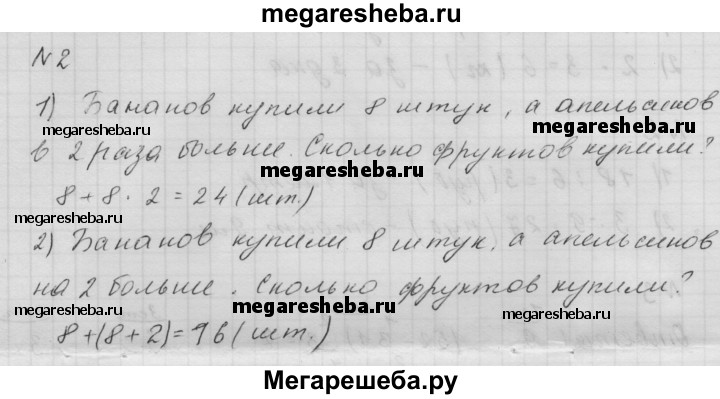 megaresheba.ru
N 2
1) Бананов купили 8 штук, а апельсинов
megaresheba.ru megaresheba.ru
в 2 раза больше. Сколько фруктов купили?
megaresheba.ru
8 + 8 · 2 = 24 (шт.)
megaresheba.ru
2) Бананов купили 8 штук, а апельсинов
megaresheba.ru
на 2 больше. Сколько фруктов купили?
megaresheba.ru megaresheba.ru
8+(8+2)=96 (шт.)
megaresheba.ru
Мегарешеба.ру